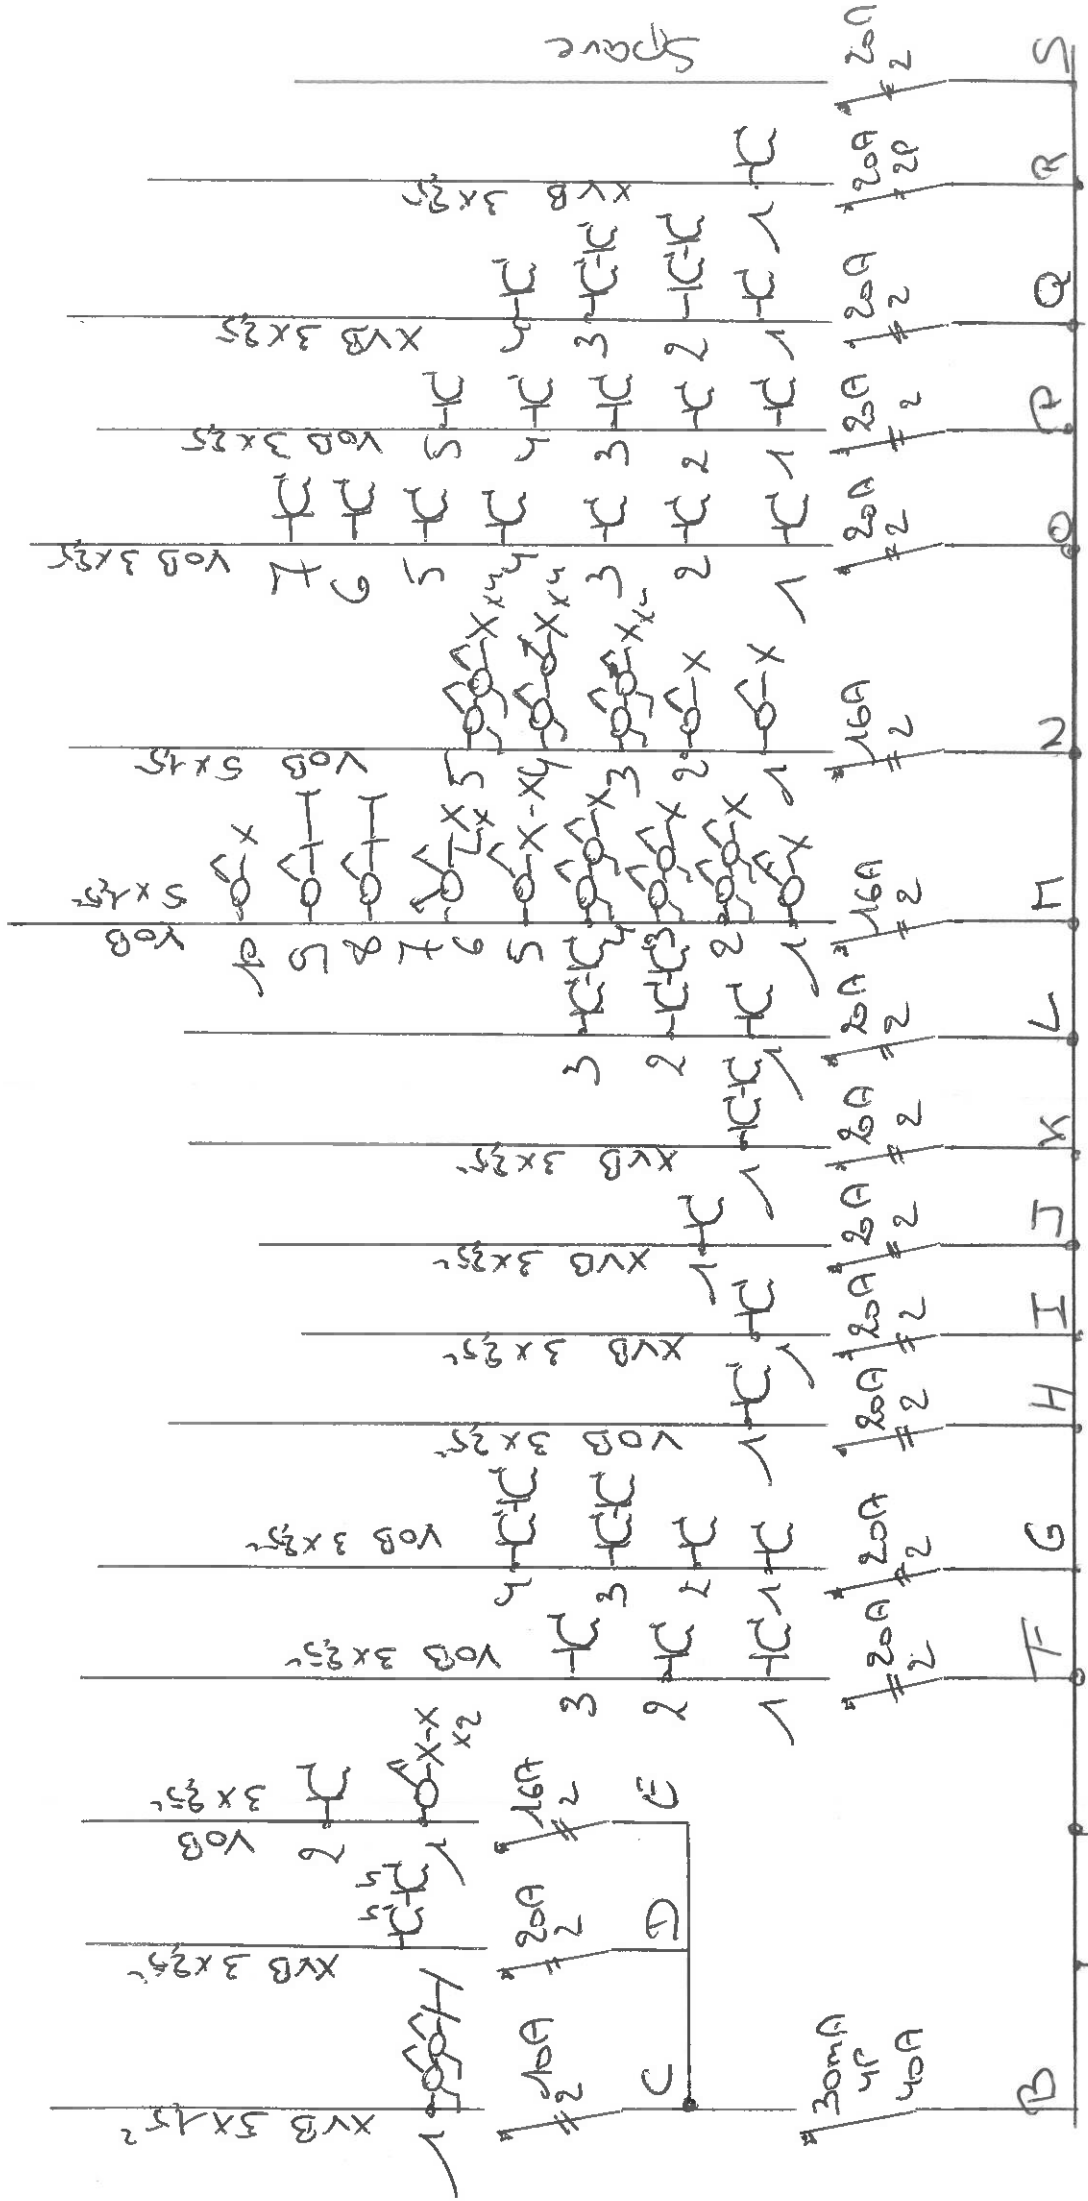 B
30mA
4P
40A
C
10A
2
1
XVB 5x1,5²
D
20A
2
XVB 3x2,5²
E
16A
2
1
x2
2
VOB
3x2,5²
F
20A
2
1
2
3
VOB 3x2,5²
G
20A
2
1
2
3
4
VOB 3x2,5²
H
20A
2
1
VOB 3x2,5²
I
20A
2
1
XVB 3x2,5²
J
20A
2
1
XVB 3x2,5²
K
20A
2
1
XVB 3x2,5²
L
20A
2
1
2
3
M
16A
2
1
2
3
4
5
6
7
8
9
10
VOB
5x1,5²
N
16A
2
1
2
3
4
x4
5
x4
VOB 5x1,5
O
20A
2
1
2
3
4
5
6
7
VOB 3x2,5
P
20A
2
1
2
3
4
5
VOB 3x2,5
Q
20A
2
1
2
3
4
XVB 3x2,5
R
20A
2P
1
XVB 3x2,5
S
20A
2
Spare